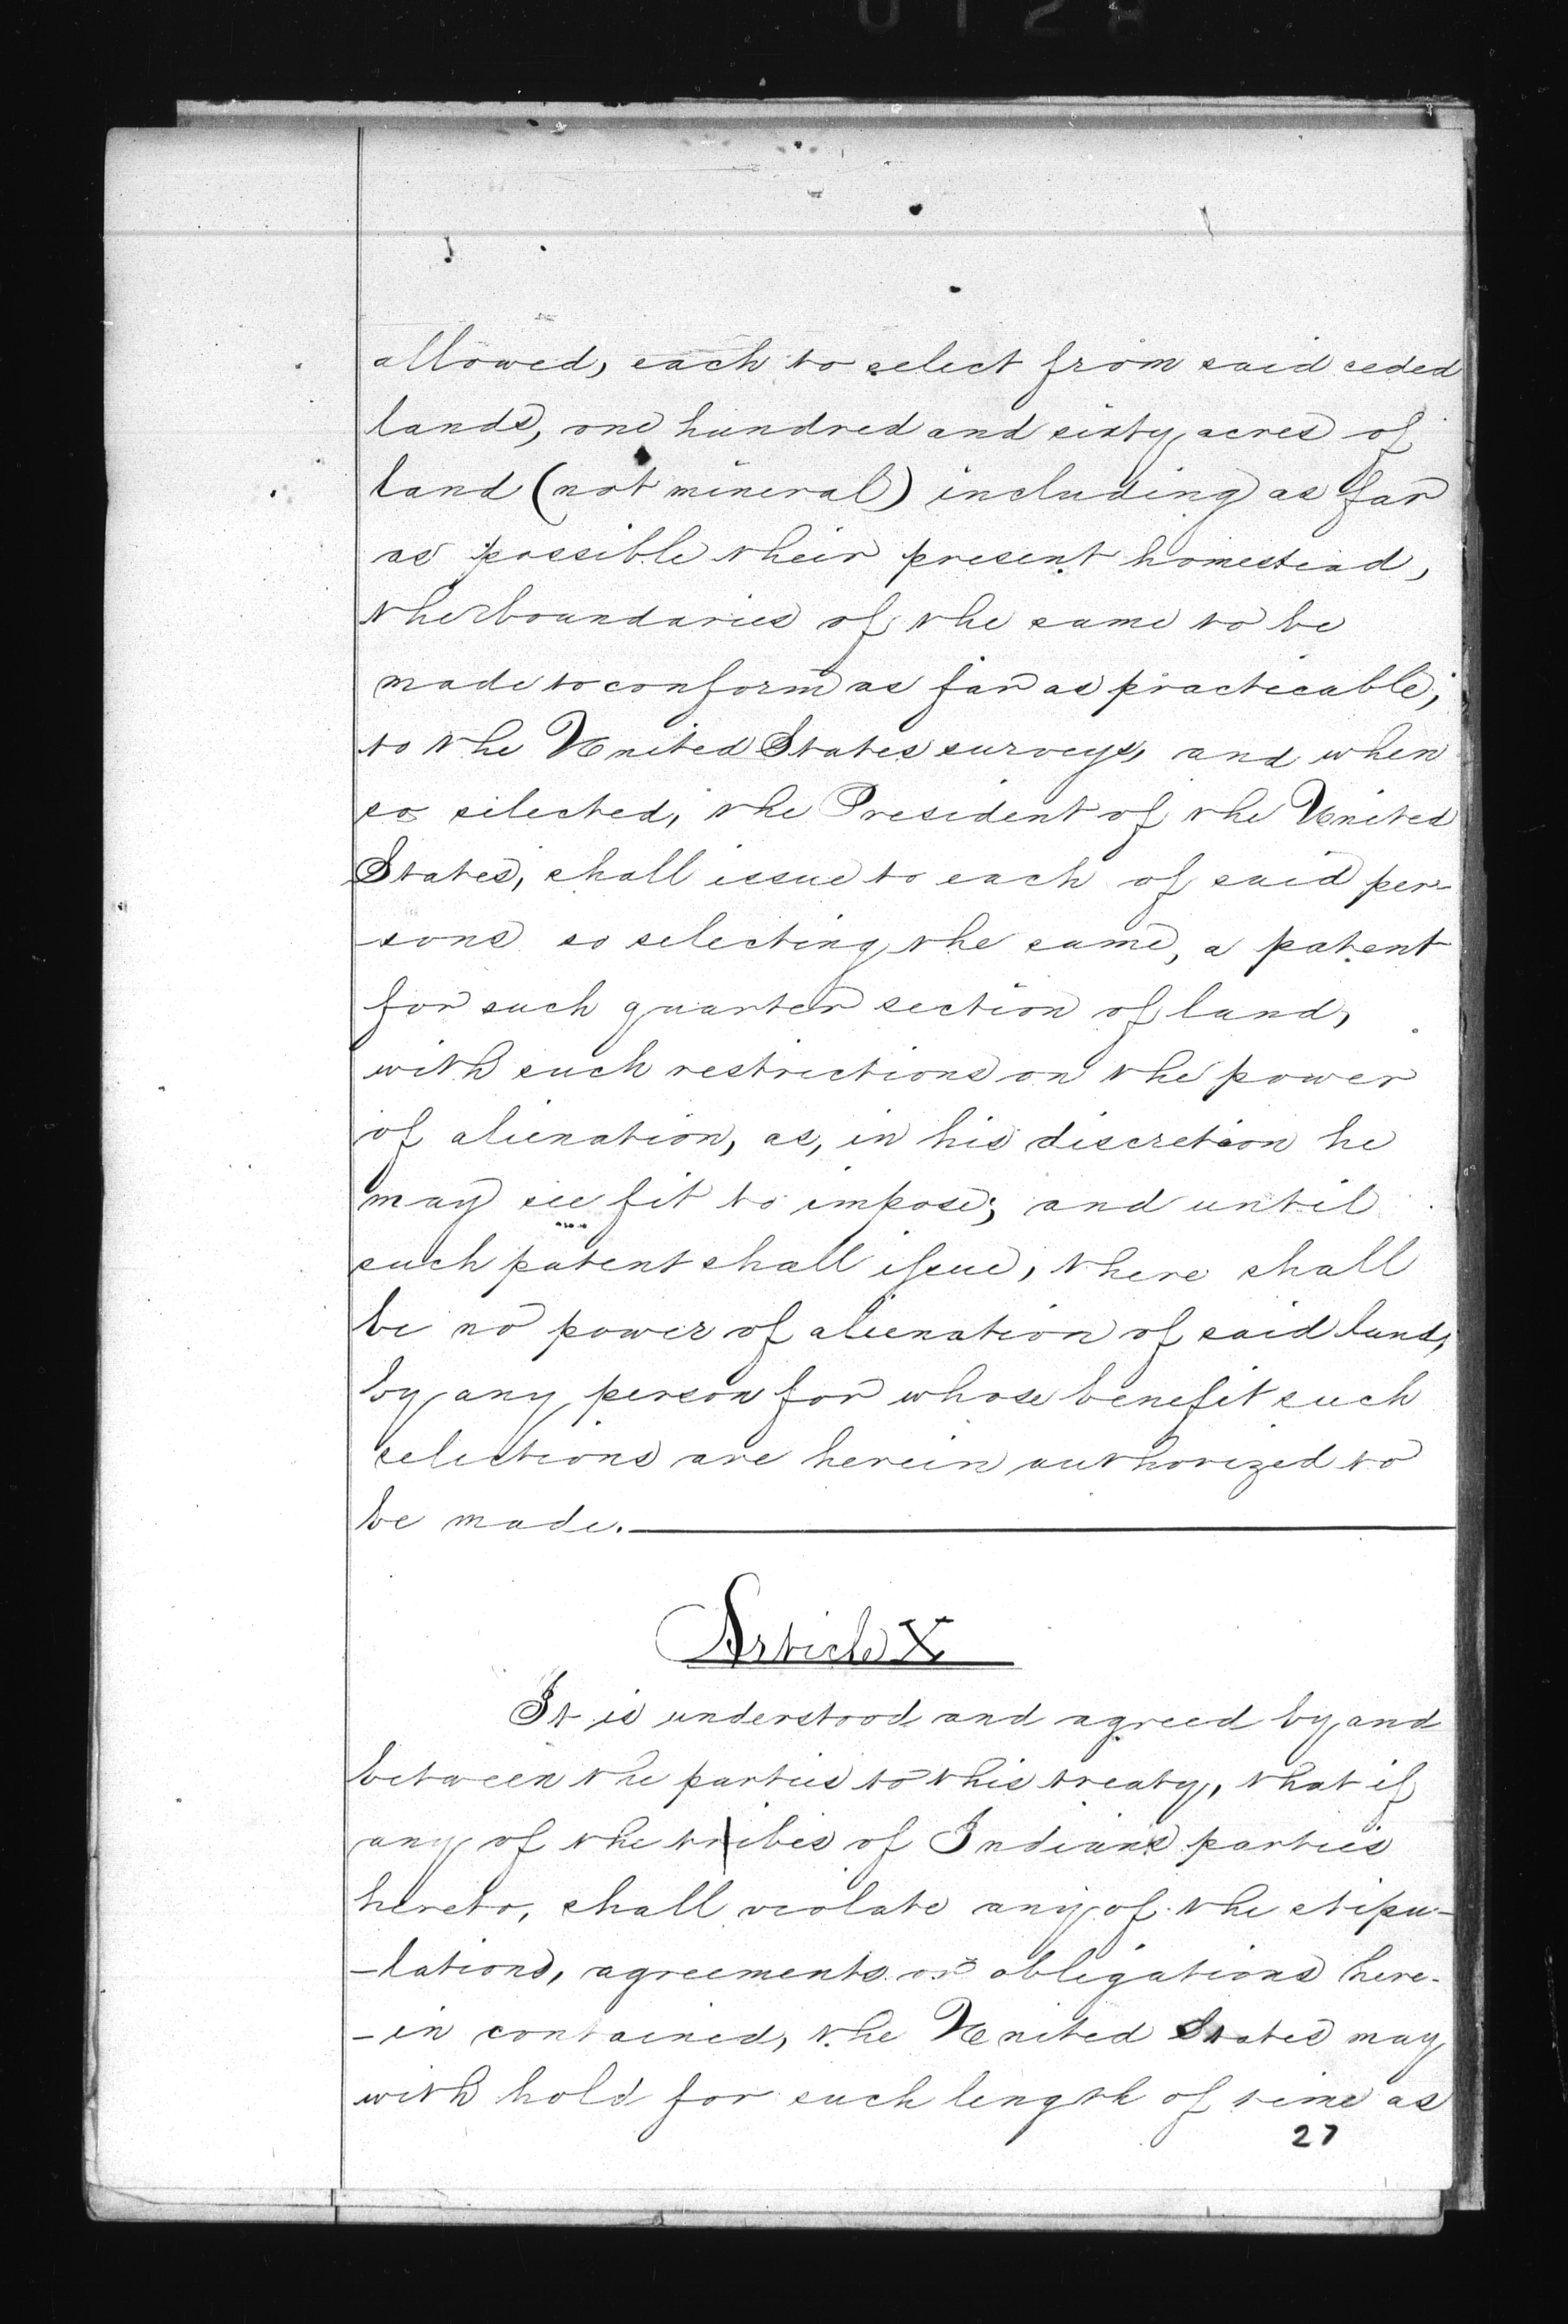 0128
allowed, each to select from said ceded
lands, one hundred and sixty acres of
land (not mineral) including as far
as possible their present homestead,
the boundaries of the same to be
made to conform as far as practicable,
to the United States surveys, and when
so selected, the President of the United
States, shall issue to each of said per-
-sons so selecting the same, a patent
for such quarter section of land,
with such restrictions on the power
of alienation, as, in his discretion he
may see fit to impose; and until
such patent shall issue, there shall
be no power of alienation of said land,
by any person for whose benefit such
selections are herein authorized to
be made.
Article X
It is understood and agreed by and
between the parties to this treaty, that if
any of the tribes of Indians parties
hereto, shall violate any of the stipu-
-lations, agreements or obligations here-
-in contained, the United States may
with hold for such length of time as
27